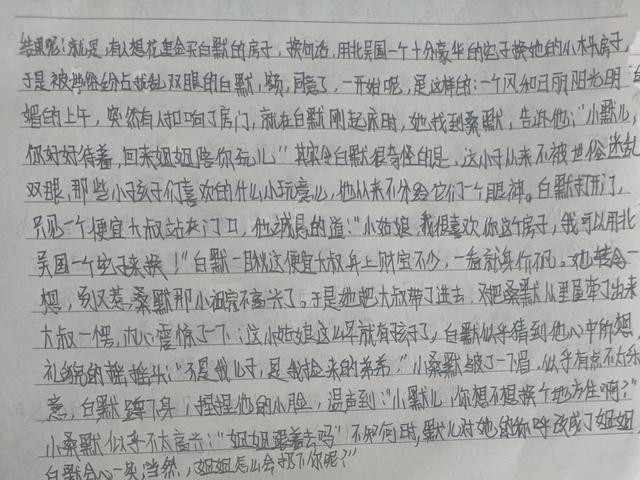 结果呢！就是，有人想花重金买白默的房子，换句话，用北吴国一个十分豪华的宅子换她的小木头房子，
于是被世俗纷占扰乱双眼的白默，额，同意了，一开始呢，是这样的：一个风和日丽阳光明
媚的上午，突然有人扣响了房门，就在白默刚起床时，她找到桑默，告诉他：“小默儿，
你好好待着，回来姐姐陪你玩儿”其实令白默很奇怪的是，这小子从来不被世俗迷乱
双眼，那些小孩子们喜欢的什么小玩意儿，他从来不分给它们一个眼神。白默打开门，
只见一个便宜大叔站在门口，他诚恳的道：“小姑娘，我很喜欢你这个房子，我可以用北
吴国一个宅子来换！”白默一目视这便宜大叔身上财宝不少，一看就身价不凡。她转念一
想，别又惹桑默那小祖宗不高兴了。于是她把大叔带了进去，又把桑默从里屋牵了出来
大叔一愣，内心震惊了一下：这小姑娘这么年就有孩子了，白默似乎猜到他心中所想，
礼貌的摇摇头：“不是我儿子，是我捡来的弟弟！”小桑默皱了一下眉，似乎有点不太乐
意，白默蹲下身，捏捏他的小脸，温声到：“小默儿，你想不想换个地方住啊？”
小桑默似乎不太高兴：“姐姐跟着去吗”不知何时，默儿对她的称呼改成了姐姐，
白默会心一笑，当然，姐姐怎么会扔下你呢？”